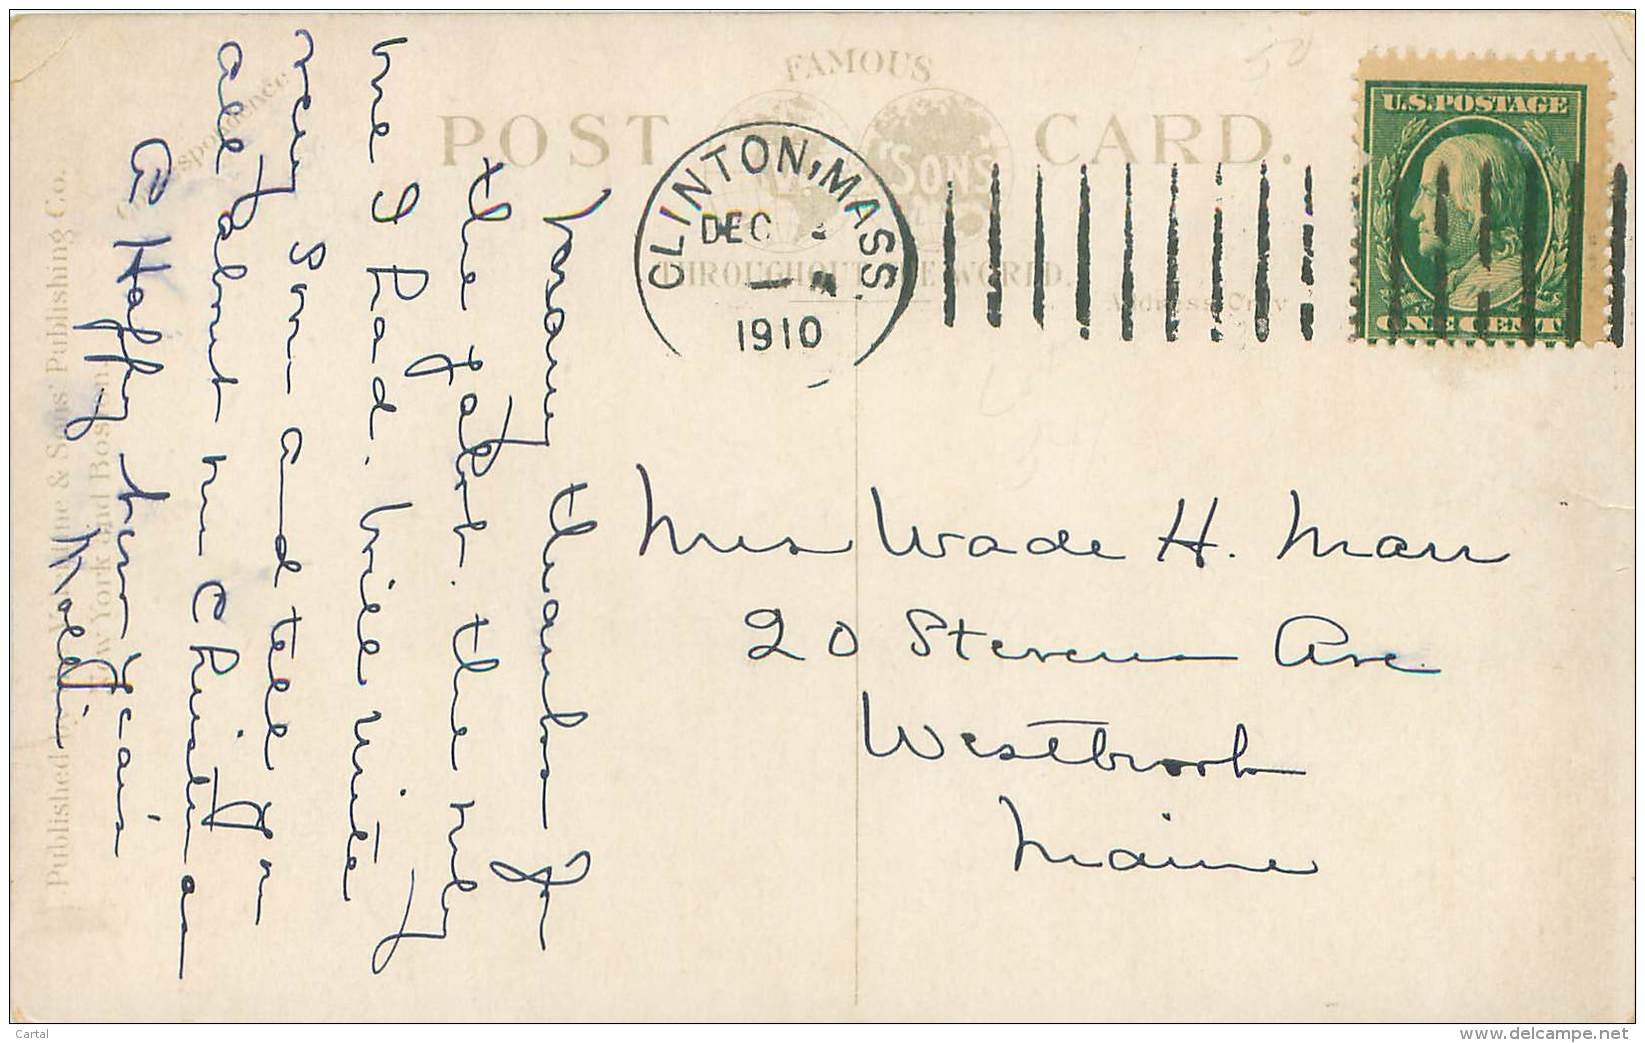 FAMOUS
POST CARD.
SONS'
THROUGHOUT THE WORLD.
Address Only
Correspondence
Published by The Valentine & Sons' Publishing Co.
New York and Boston.
CLINTON, MASS.
DEC
1910
U.S. POSTAGE
ONE CENT
50
Many thanks for
the fob. the only
one I had. Will write
very soon and tell you
all about my Christmas
A Happy New Year
Mrs Wade H. Marr
20 Stevens Ave
Westbrook
Maine
Cartal
www.delcampe.net